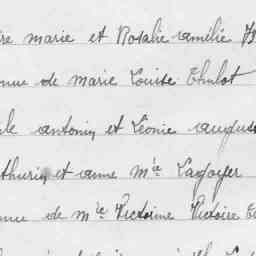 re marie et Rosalie amélie
nue de Marie Louise Thulot
le antonin et Léonie augus
thurin et anne mie Lagoyer
nue de mie Victorine Victoire